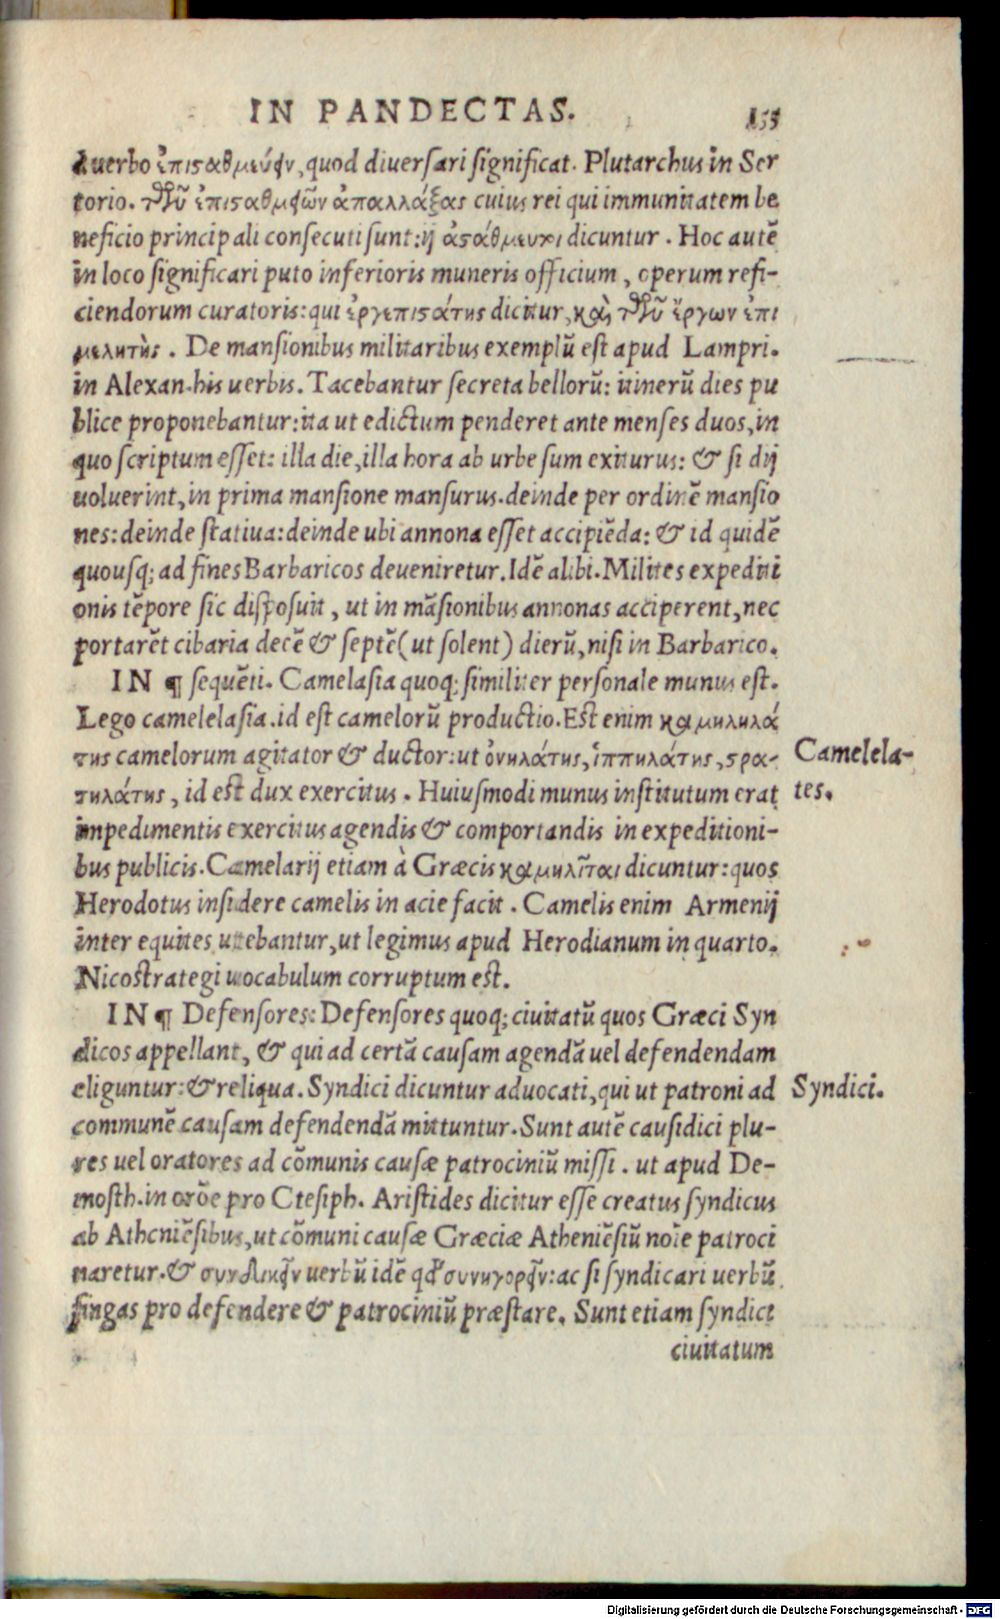 IN PANDECTAS. 155
à uerbo ἐπισαθμεύειν, quod diuersari significat. Plutarchus in Ser
torio. τῶν ἐπισαθμειῶν ἀπαλλάξας cuius rei qui immunitatem be
neficio principali consecuti sunt: ij ἀσάθμευτοι dicuntur. Hoc autē
in loco significari puto inferioris muneris officium, operum refi-
ciendorum curatoris: qui ἐργεπισάτης dicitur, καὶ τῶν ἔργων ἐπι
μελητὴς. De mansionibus militaribus exemplū est apud Lampri.
in Alexan. his uerbis. Tacebantur secreta bellorū: itinerū dies pu
blice proponebantur: ita ut edictum penderet ante menses duos, in
quo scriptum esset: illa die, illa hora ab urbe sum exiturus: & si dij
uoluerint, in prima mansione mansurus. deinde per ordinē mansio
nes: deinde statiua: deinde ubi annona esset accipiēda: & id quidē
quousq; ad fines Barbaricos deueniretur. Idē alibi. Milites expediti
onis tēpore sic disposuit, ut in māsionibus annonas acciperent, nec
portarēt cibaria decē & septē (ut solent) dierū, nisi in Barbarico.
IN ¶ sequēti. Camelasia quoq; similiter personale munus est.
Lego camelelasia. id est camelorū productio. Est enim καμηληλά
της camelorum agitator & ductor: ut ὀνηλάτης, ἱππηλάτης, σρα-
τηλάτης, id est dux exercitus. Huiusmodi munus institutum erat
impedimentis exercitus agendis & comportandis in expeditioni-
bus publicis. Camelarij etiam à Græcis καμηλῖται dicuntur: quos
Herodotus insidere camelis in acie facit. Camelis enim Armenij
inter equites utebantur, ut legimus apud Herodianum in quarto.
Nicostrategi uocabulum corruptum est.
Camelela-
tes.
IN ¶ Defensores: Defensores quoq; ciuitatū quos Græci Syn
dicos appellant, & qui ad certā causam agendā uel defendendam
eliguntur: & reliqua. Syndici dicuntur aduocati, qui ut patroni ad
communē causam defendendā mittuntur. Sunt autē causidici plu-
res uel oratores ad cōmunis causæ patrociniū missi. ut apud De-
mosth. in orōe pro Ctesiph. Aristides dicitur esse creatus syndicus
ab Atheniēsibus, ut cōmuni causæ Græciæ Atheniēsiū noīe patroci
naretur. & συνδικεῖν uerbū idē qđ συνηγορεῖν: ac si syndicari uerbū
fingas pro defendere & patrociniū præstare. Sunt etiam syndici
Syndici.
ciuitatum
Digitalisierung gefördert durch die Deutsche Forschungsgemeinschaft - DFG